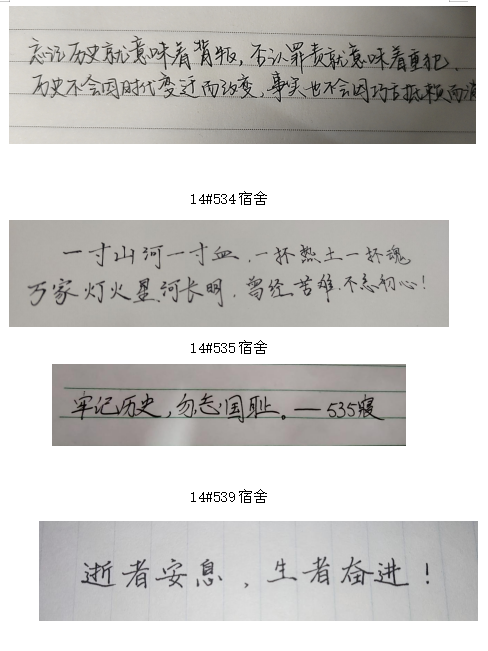 忘记历史就意味着背叛，否认罪责就意味着重犯.
历史不会因时代变迁而改变，事实也不会因巧舌抵赖而消
14#534宿舍
一寸山河一寸血，一抔热土一抔魂
万家灯火星河长明，曾经苦难，不忘初心！
14#535宿舍
牢记历史，勿忘国耻。—535寝
14#539宿舍
逝者安息，生者奋进！